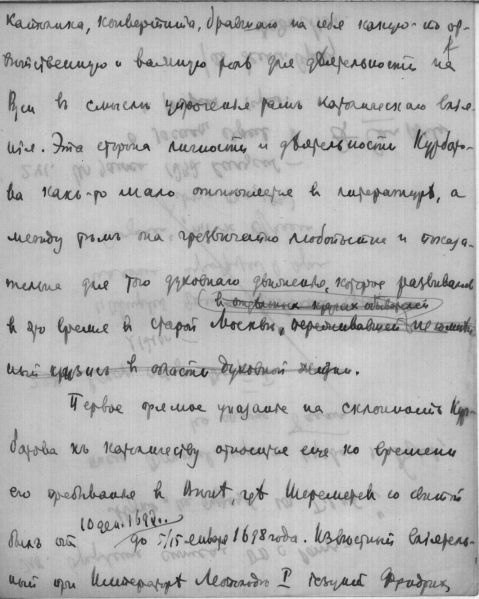 католика, конвертита, бравшаго на себя какую-то от-
вѣтственную и важную роль для дѣятельности на
Руси въ смыслѣ упроченія тамъ католическаго влія-
нія. Эта сторона личности и дѣятельности Курбато-
ва какъ-то мало отмѣчается въ литературѣ, а
между тѣмъ она чрезвычайно любопытна и показа-
тельна для того духовнаго движенія, которое развивалось
въ отдѣльныхъ кругахъ
въ это время въ старой Москвѣ, переживавшей
ный кризисъ въ области духовной жизни.
Первое прямое указаніе на склонность Кур-
батова къ католичеству относится еще ко времени
его пребыванія въ Вѣнѣ, гдѣ Шереметев со свитой
10 дек. 1697 г.
былъ от до 5/15 января 1698 года. Извѣстный вліятель-
ный при Императорѣ Леопольдѣ I іезуитъ Фридрих